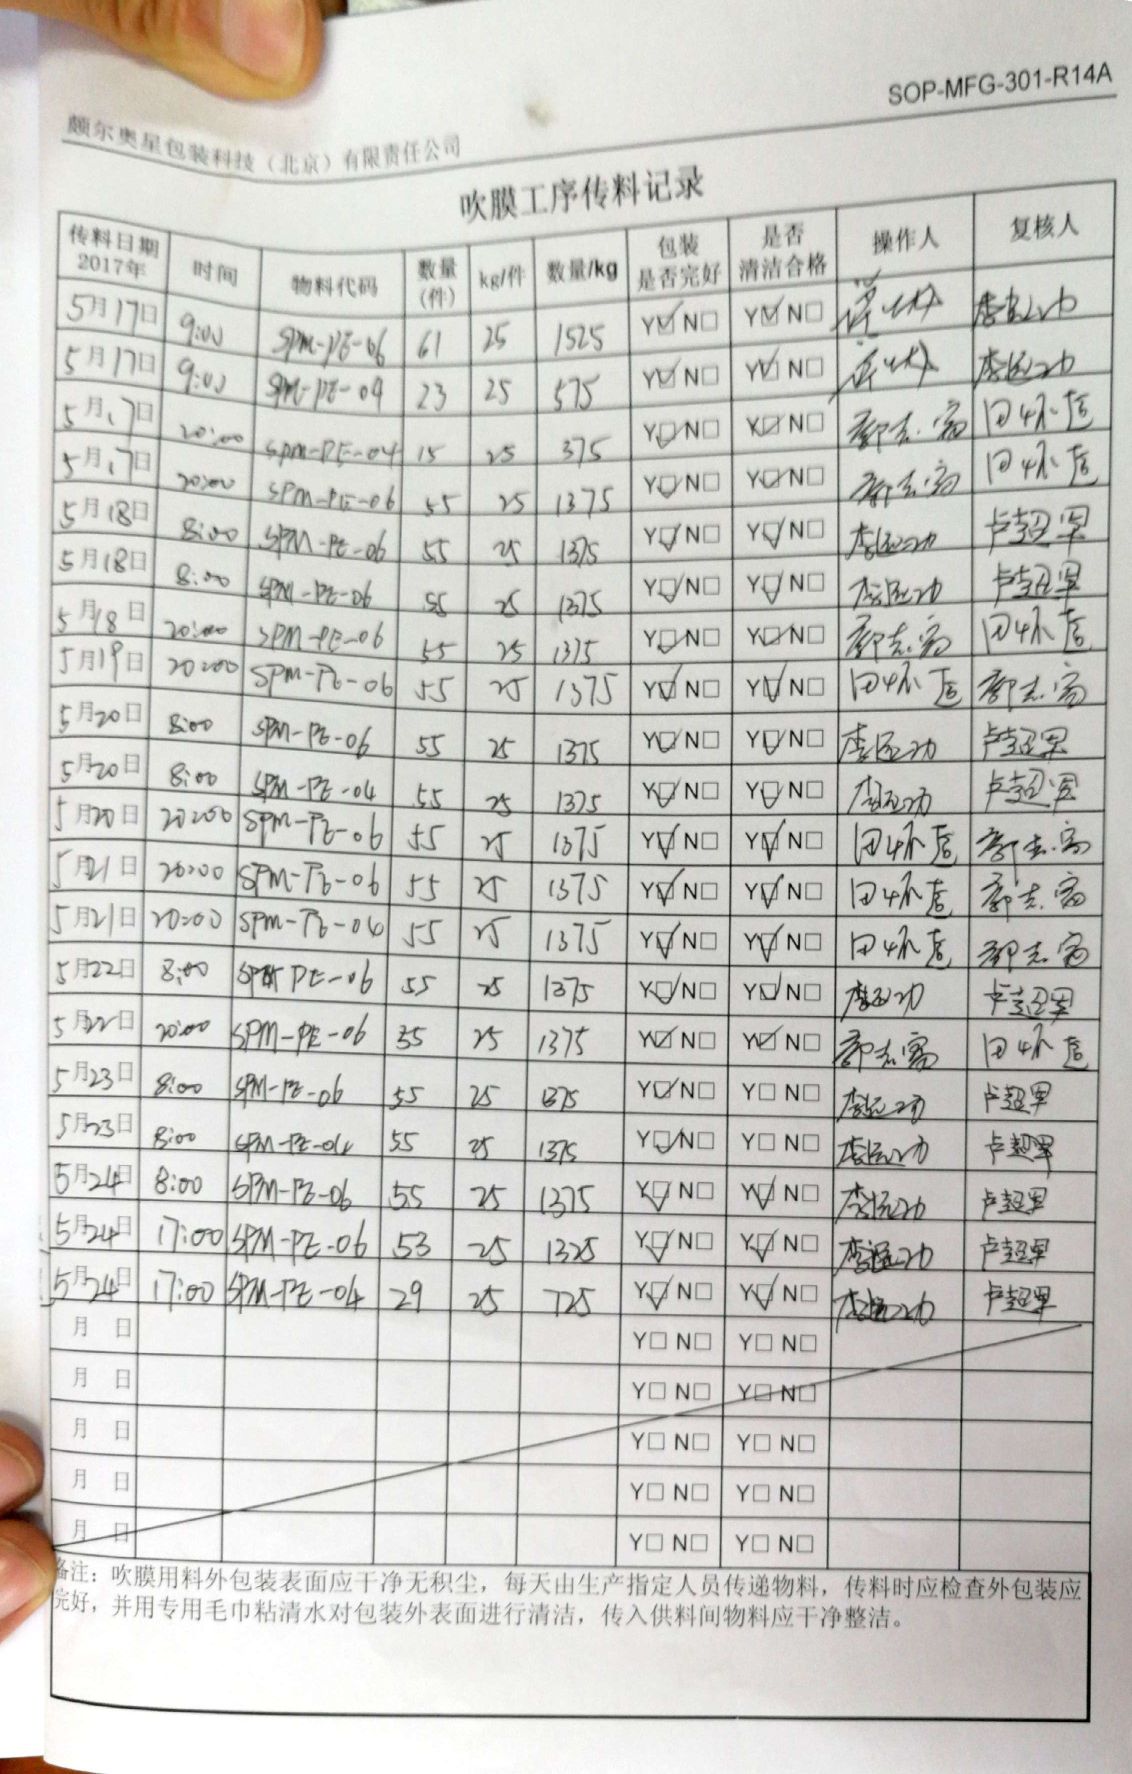 SOP-MFG-301-R14A
颇尔奥星包装科技（北京）有限责任公司
吹膜工序传料记录
传料日期 2017年 时间 物料代码 数量（件） kg/件 数量/kg 包装是否完好 是否清洁合格 操作人 复核人
5月17日 9:00 SPM-PE-06 61 25 1525 Y☑ N□ Y☑ N□
5月17日 9:00 SPM-PE-04 23 25 575 Y☑ N□ Y☑ N□
5月17日 20:00 SPM-PE-04 15 25 375 Y☑ N□ Y☑ N□ 郭志富 田怀恩
5月17日 20:00 SPM-PE-06 55 25 1375 Y☑ N□ Y☑ N□ 郭志富 田怀恩
5月18日 8:00 SPM-PE-06 55 25 1375 Y☑ N□ Y☑ N□ 卢超军
5月18日 8:00 SPM-PE-06 55 25 1375 Y☑ N□ Y☑ N□ 卢超军
5月18日 20:00 SPM-PE-06 55 25 1375 Y☑ N□ Y☑ N□ 郭志富 田怀恩
5月19日 20:00 SPM-PE-06 55 25 1375 Y☑ N□ Y☑ N□ 田怀恩 郭志富
5月20日 8:00 SPM-PE-06 55 25 1375 Y☑ N□ Y☑ N□ 卢超军
5月20日 8:00 SPM-PE-04 55 25 1375 Y☑ N□ Y☑ N□ 卢超军
5月20日 20:00 SPM-PE-06 55 25 1375 Y☑ N□ Y☑ N□ 田怀恩 郭志富
5月21日 20:00 SPM-PE-06 55 25 1375 Y☑ N□ Y☑ N□ 田怀恩 郭志富
5月21日 20:00 SPM-PE-04 55 25 1375 Y☑ N□ Y☑ N□ 田怀恩 郭志富
5月22日 8:00 SPM PE-06 55 25 1375 Y☑ N□ Y☑ N□ 卢超军
5月22日 20:00 SPM-PE-06 55 25 1375 Y☑ N□ Y☑ N□ 郭志富 田怀恩
5月23日 8:00 SPM-PE-06 55 25 1375 Y☑ N□ Y□ N□ 卢超军
5月23日 8:00 SPM-PE-04 55 25 1375 Y☑ N□ Y□ N□ 卢超军
5月24日 8:00 SPM-PE-06 55 25 1375 Y☑ N□ Y☑ N□ 卢超军
5月24日 17:00 SPM-PE-06 53 25 1325 Y☑ N□ Y☑ N□ 卢超军
5月24日 17:00 SPM-PE-04 29 25 725 Y☑ N□ Y☑ N□ 卢超军
月 日 Y□ N□ Y□ N□
月 日 Y□ N□ Y□ N□
月 日 Y□ N□ Y□ N□
月 日 Y□ N□ Y□ N□
月 日 Y□ N□ Y□ N□
备注：吹膜用料外包装表面应干净无积尘，每天由生产指定人员传递物料，传料时应检查外包装应
完好，并用专用毛巾粘清水对包装外表面进行清洁，传入供料间物料应干净整洁。